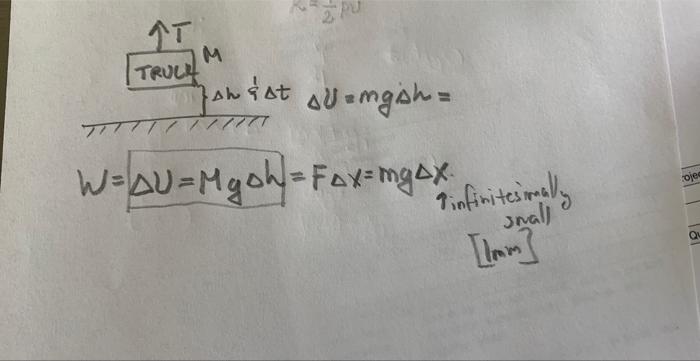 K=½pv
↑T
TRUCK M
Δh & Δt ΔU=mgΔh=
W=ΔU=MgΔh=FΔx=mgΔx.
↑infinitesimally
small
[1mm]
ojec
Qu